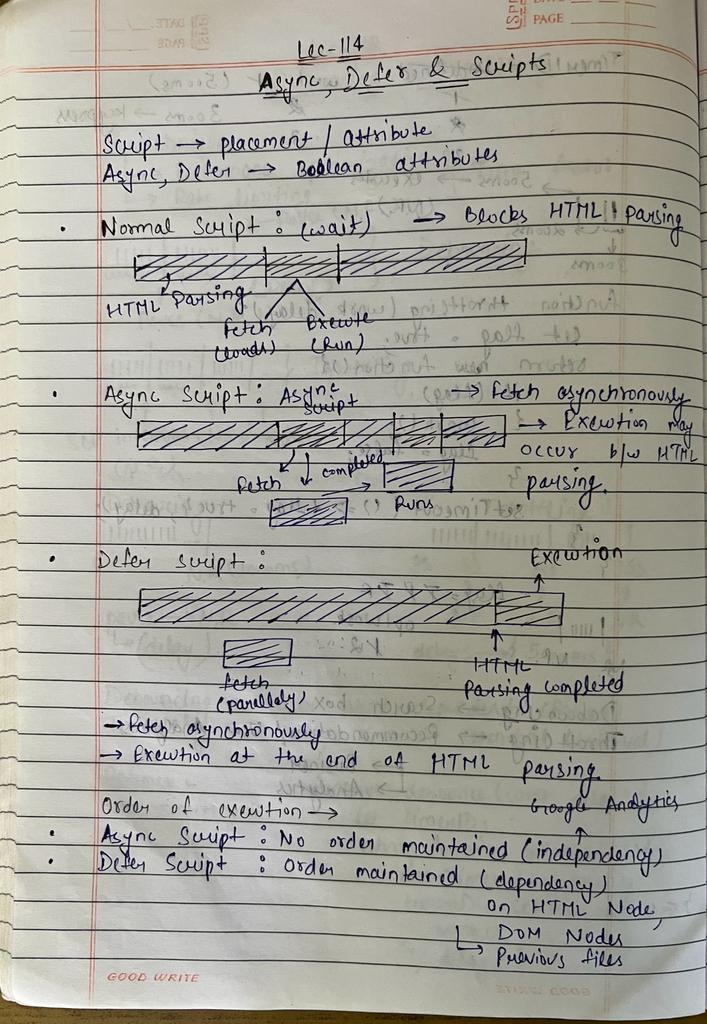 PAGE
Lec-114
Async, Defer & Scripts
Script → placement / attribute
Async, Defer → Boolean attributes
• Normal Script : (wait) → Blocks HTML parsing
HTML Parsing
Fetch Execute
(loads) (Run)
• Async Script : Async Script → Fetch asynchronously
→ Execution may
occur b/w HTML
parsing.
Fetch completed
Runs
• Defer Script :
Execution
HTML
Parsing completed
Fetch
(parellely)
→ Fetch asynchronously
→ Execution at the end of HTML parsing
Order of execution →
Google Analytics
• Async Script : No order maintained (independency)
• Defer Script : Order maintained (dependency)
on HTML Node,
DOM Nodes
↳ Previous files
GOOD WRITE